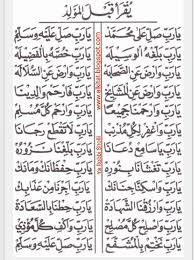 يُقْرَأُ قَبْلَ المَوْلِدِ
يَارَبِّ صَلِّ عَلَى مُحَمَّدْ يَارَبِّ صَلِّ عَلَيْهِ وَسَلِّمْ
يَارَبِّ بَلِّغْهُ الْوَسِيْلَةْ يَارَبِّ خُصَّهُ بِالْفَضِيْلَةْ
يَارَبِّ وَارْضَ عَنِ الصَّحَابَةْ يَارَبِّ وَارْضَ عَنِ السُّلَالَةْ
يَارَبِّ وَارْضَ عَنِ الْمَشَايِخْ يَارَبِّ فَارْحَمْ وَالِدِيْنَا
يَارَبِّ وَارْحَمْنَا جَمِيْعًا يَارَبِّ وَارْحَمْ كُلَّ مُسْلِمْ
يَارَبِّ وَاغْفِرْ لِكُلِّ مُذْنِبْ يَارَبِّ لَا تَقْطَعْ رَجَانَا
يَارَبِّ يَاسَامِعْ دُعَانَا يَارَبِّ بَلِّغْنَا نَزُوْرُهْ
يَارَبِّ تَغْشَانَا بِنُوْرِهْ يَارَبِّ حِفْظَانَكْ وَأَمَانَكْ
يَارَبِّ وَاسْكِنَّا جِنَانَكْ يَارَبِّ أَجِرْنَا مِنْ عَذَابِكْ
يَارَبِّ وَارْزُقْنَا الشَّهَادَةْ يَارَبِّ حِطْنَا بِالسَّعَادَةْ
يَارَبِّ وَاصْلِحْ كُلَّ مُصْلِحْ يَارَبِّ وَاكْفِ كُلَّ مُؤْذِيْ
يَارَبِّ نَخْتِمْ بِالْمُشَفَّعْ يَارَبِّ صَلِّ عَلَيْهِ وَسَلِّمْ